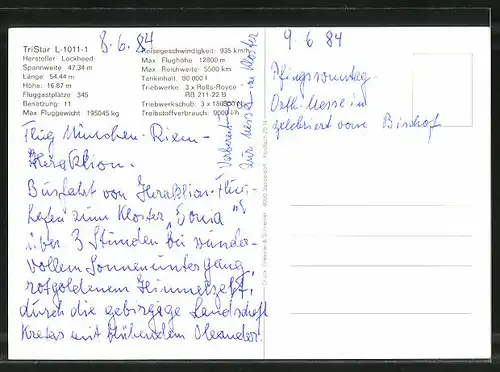 8.6.84
TriStar L-1011-1
Hersteller: Lockheed
Spannweite: 47,34 m
Länge: 54,44 m
Höhe: 16,87 m
Fluggastplätze: 345
Besatzung: 11
Max. Fluggewicht: 195045 kg
Reisegeschwindigkeit: 935 km/h
Max. Flughöhe: 12800 m
Max. Reichweite: 5500 km
Tankinhalt: 90 000 l
Triebwerke: 3 x Rolls-Royce
RB 211-22 B
Triebwerkschub: 3 x
Treibstoffverbrauch: 9000 l/h
Flug München-Riem-
Heraklion.
Busfahrt von Heraklion-Flug-
hafen zum Kloster "Gonia"
über 3 Stunden bei wunder-
vollem Sonnenuntergang,
rotgoldenem Himmelszelt,
durch die gebirgige Landschaft
Kretas mit blühendem Oleander.
zur Messe im Kloster
9.6.84
Pfingstsonntag-
Orth. Messe
zelebriert vom Bischof